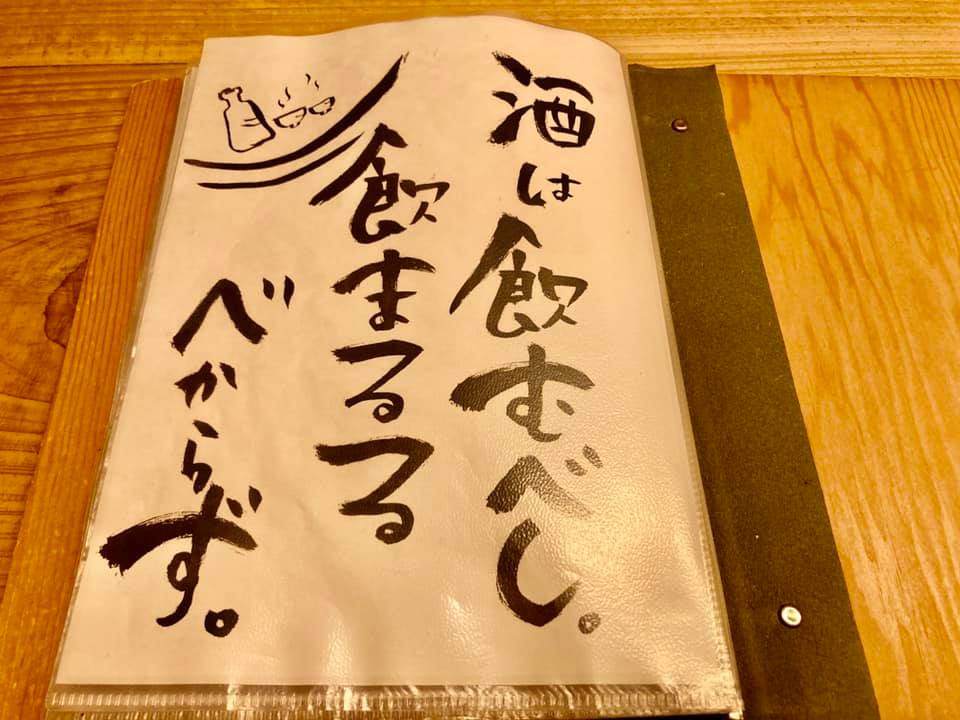 酒は飲むべし。
飲まるる
べからず。